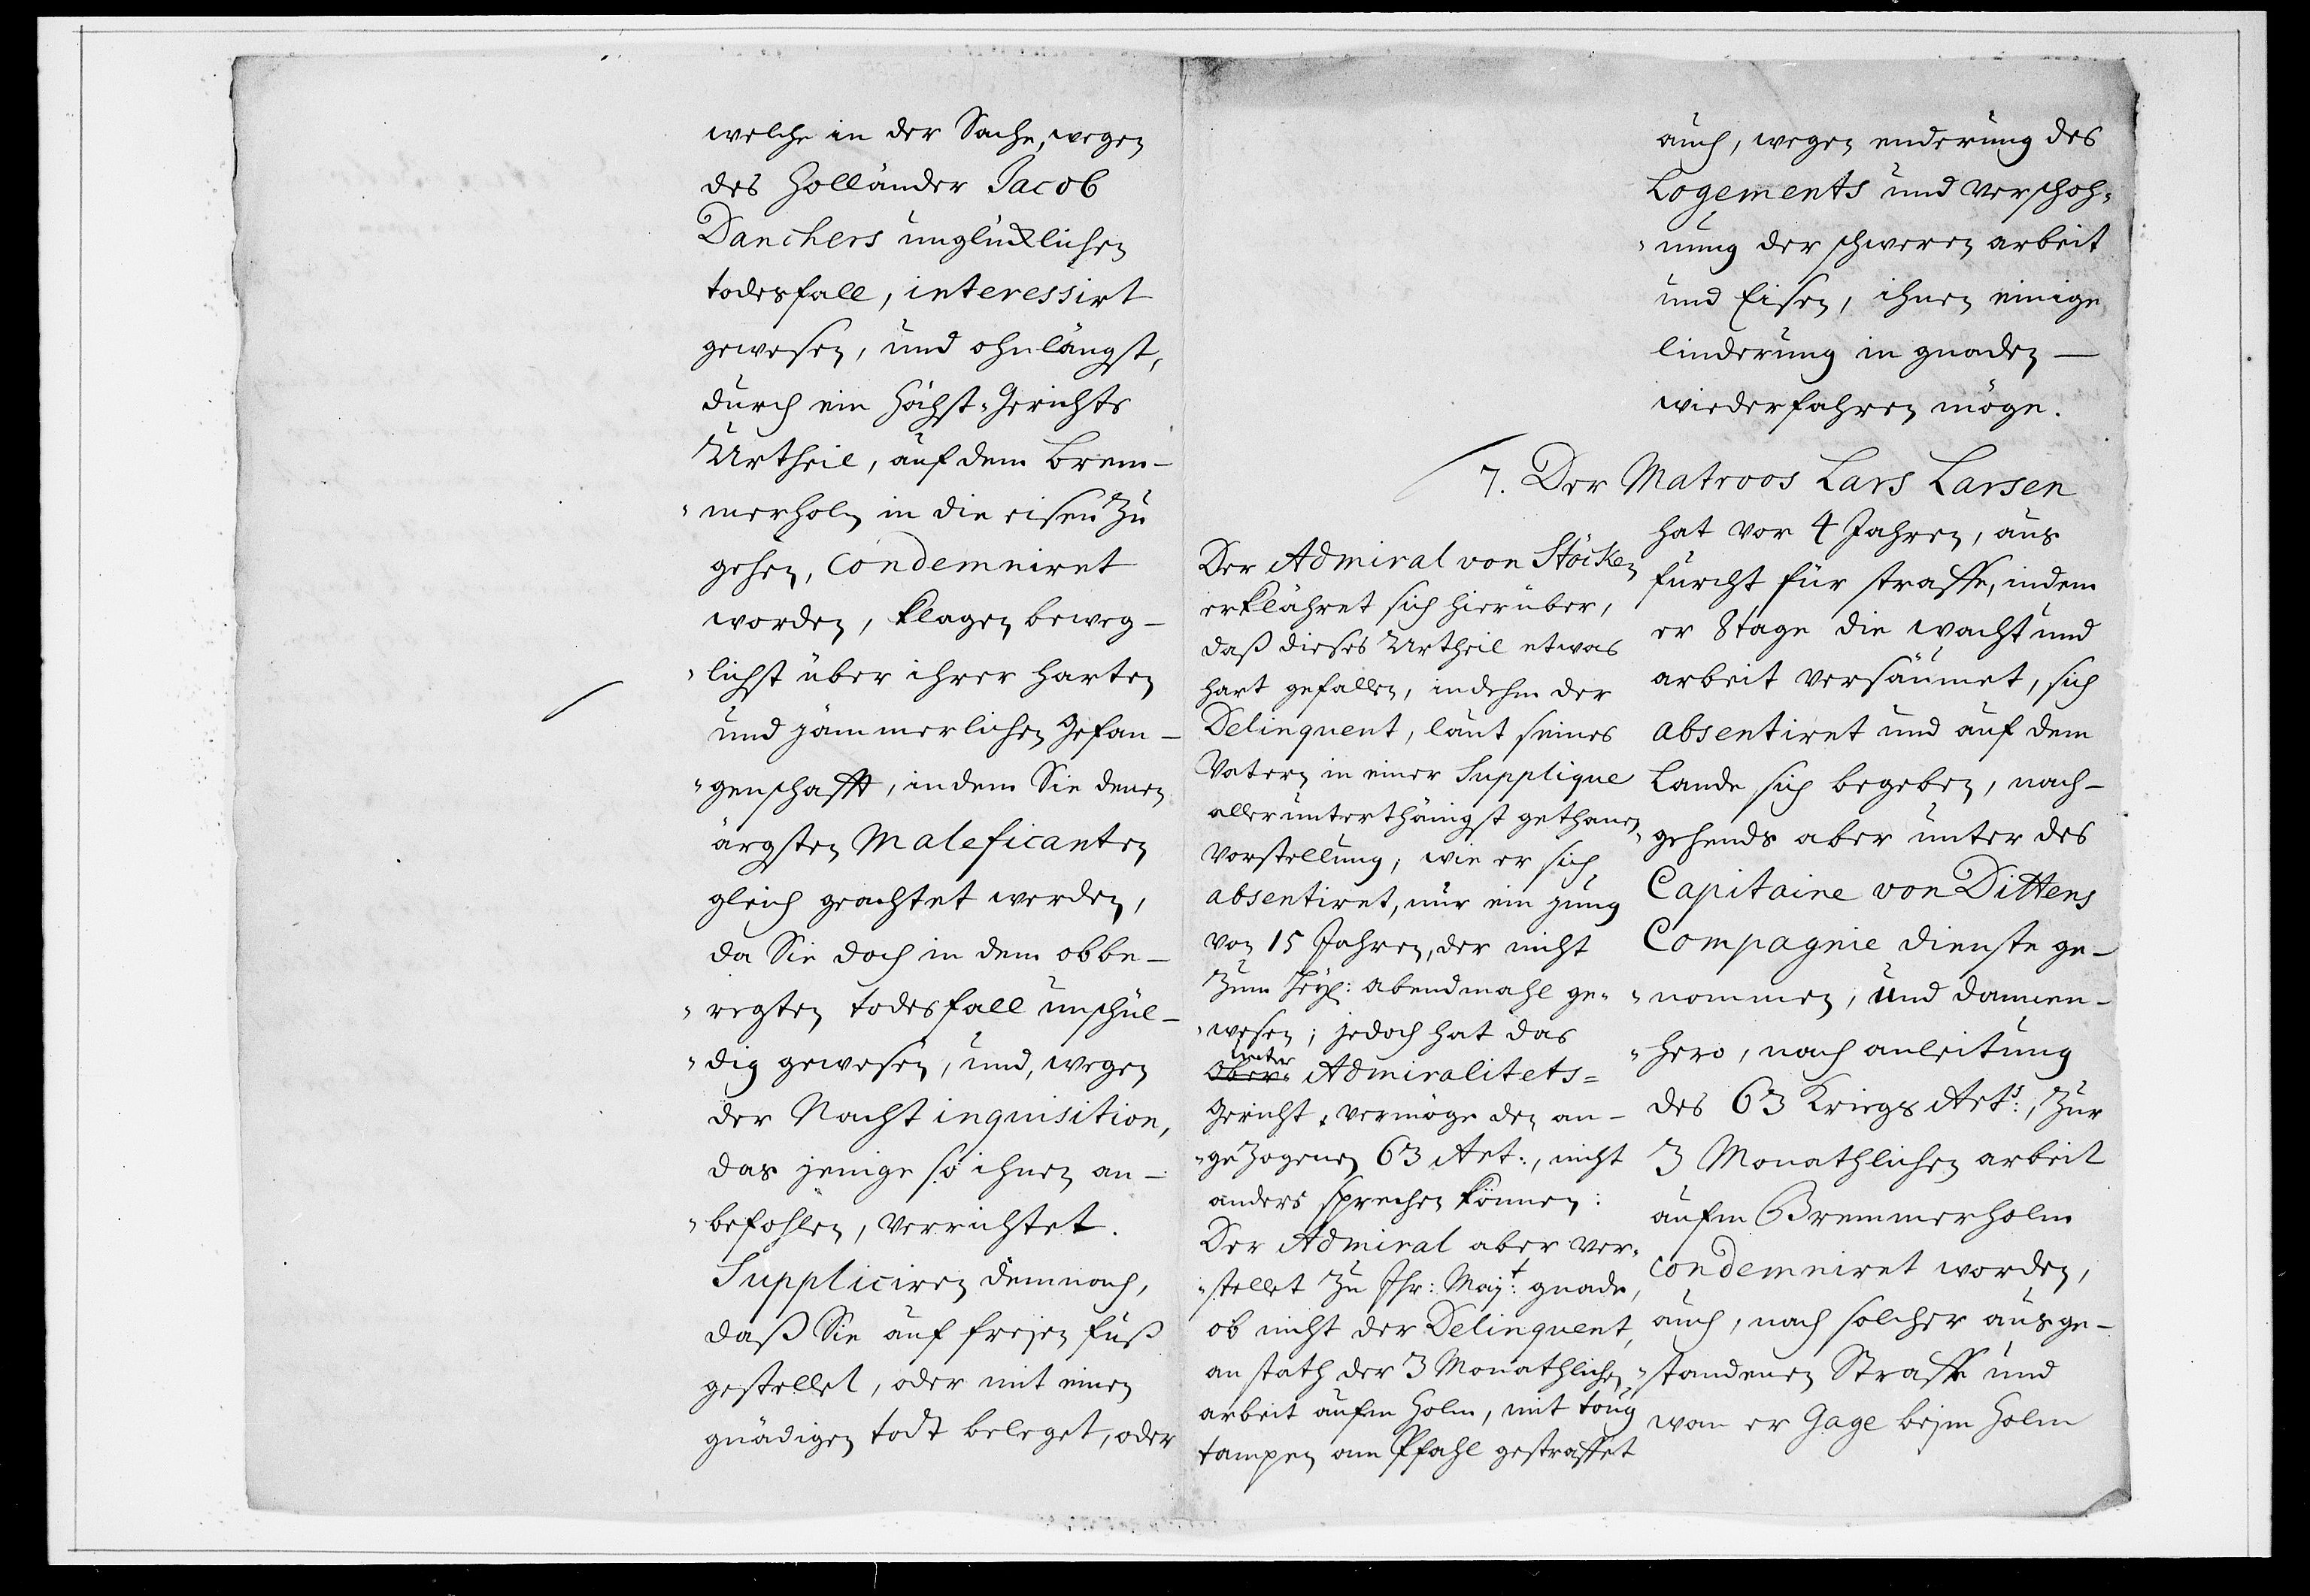 welche in der Sache, wegen
des Holländer Jacob
Danchers unglüklichen
todesfall, interessirt
gewesen, und ohnlängst,
durch ein Höchst-Gerichts
Urtheil, auf dem Brem-
"merholm in die eisen zu
gehen, condemniret
worden, klagen beweg-
"lichst über ihrer harten
und jämmerlichen Gefan-
"genschafft, indem Sie denen
ärgsten Maleficanten
gleich geachtet werden,
da Sie doch in dem obbe-
"regten todesfall unschul-
"dig gewesen, und, wegen
der Nacht inquisition,
das jenige so ihnen an-
"befohlen, verrichtet.
Suppliciren demnach,
daß Sie auf freyen fuß
gestellet, oder mit einen
gnädigen todt beleget, oder
auch, wegen enderung des
Logements und verschoh-
"nung der schweren arbeit
und Eisen, ihnen einige
linderung in gnaden —
wiederfahren möge.
7. Der Matroos Lars Larsen
hat vor 4 Jahren, aus
furcht für straffe, indem
er 8 tage die wacht und
arbeit versäumet, sich
absentiret und auf dem
Lande sich begeben, nach-
"gehends aber unter des
Capitaine von Dittens
Compagnie dienste ge-
"nommen, und dannen-
"hero, nach anleitung
des 63 Kriegs Art:, zur
3 Monathlichen arbeit
aufm Bremmerholm
condemniret worden,
auch, nach solcher ausge-
"standenen Straffe und
wan er Gage beym Holm
Der Admiral von Stöcken
erklähret sich hierüber,
daß dieses Urtheil etwas
hart gefallen, indehm der
Delinquent, laut seines
Vatern in einer Supplique
allerunterthänigst gethanen
Vorstellung, wie er sich
absentiret, nur ein jung
von 15 Jahren, der nicht
zum Heyl: abendmahl ge-
"wesen; jedoch hat das
unter
Ober- Admiralitets=
Gericht, vermöge den an-
"gezogenen 63 Art:, nicht
anders sprechen können:
Der Admiral aber ver-
"stellet zu Ihr: Mayt: gnade,
ob nicht der Delinquent,
an stath der 3 Monathlichen
arbeit aufm Holm, mit toug
tampen am Pfahl gestraffet